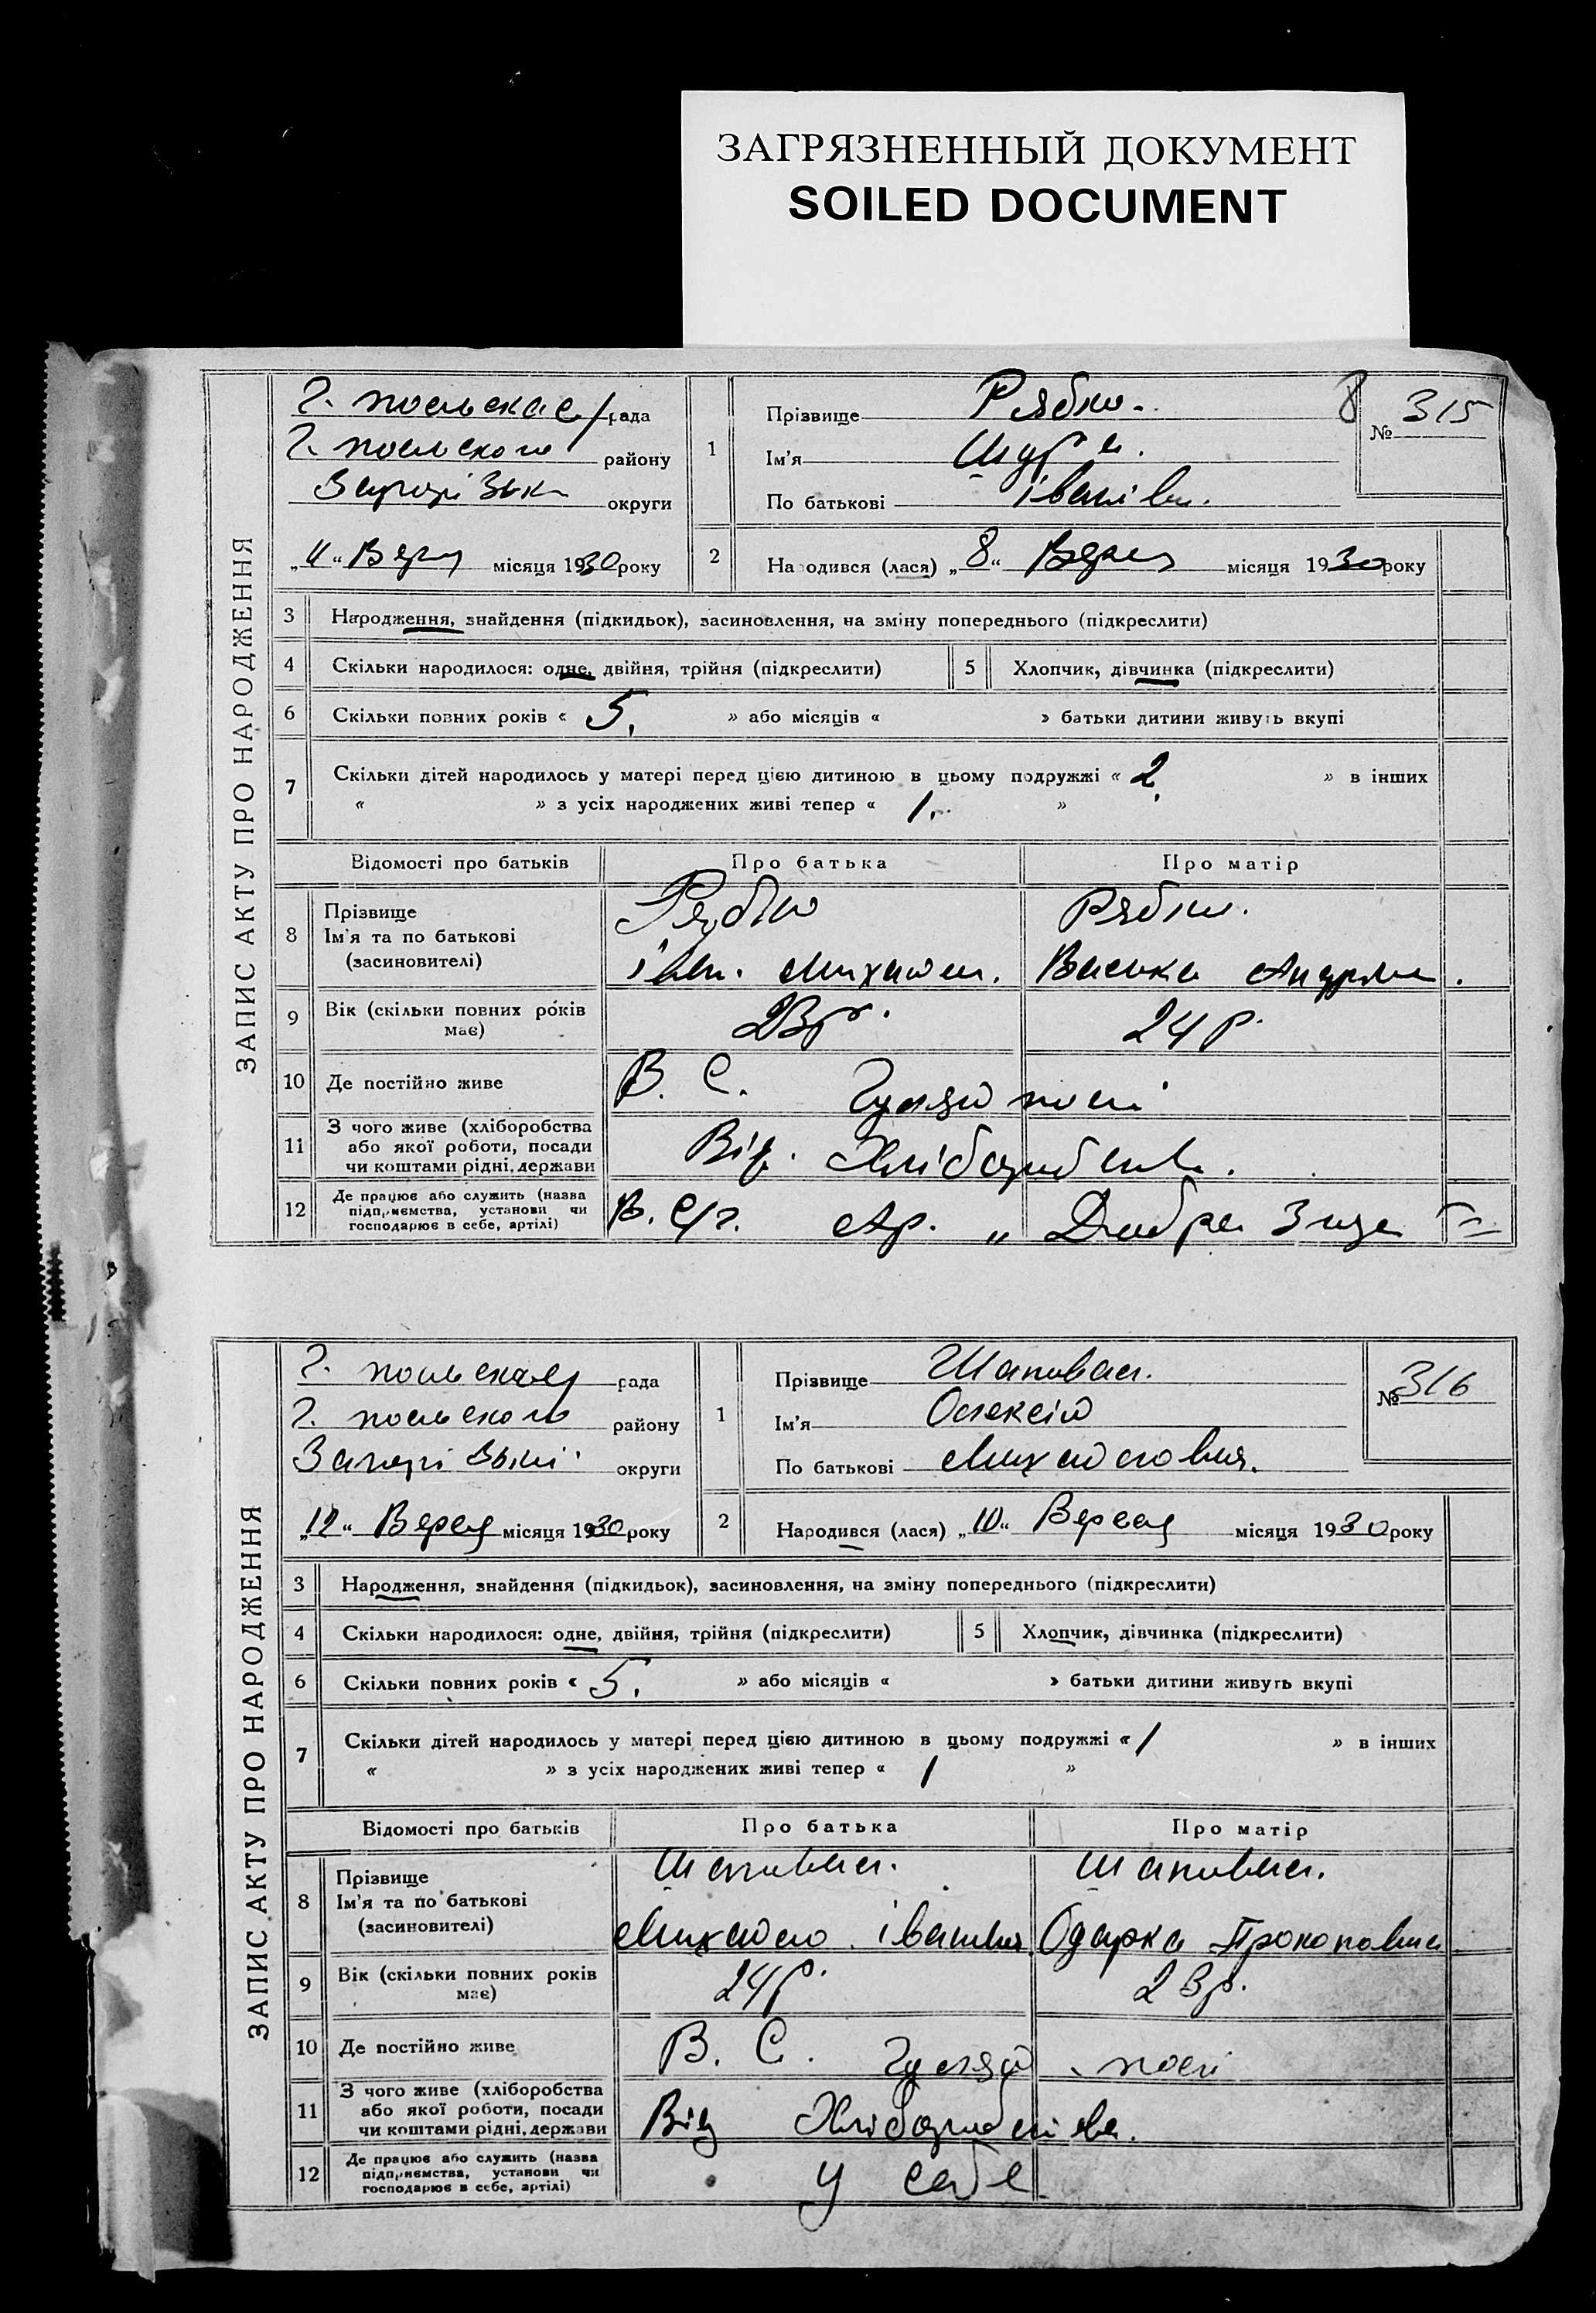 ЗАГРЯЗНЕННЫЙ ДОКУМЕНТ
SOILED DOCUMENT
ЗАПИС АКТУ ПРО НАРОДЖЕННЯ
Г. польская рада
Г. польского району
округи
„11“ місяця 1930 року
1
Прізвище Рябко.
Ім'я Шура.
По батькові Іванівн.
№ 315
2
Народився (лася) „8“ місяця 1930 року
3 Народження, знайдення (підкидьок), засиновлення, на зміну попереднього (підкреслити)
4 Скільки народилося: одне, двійня, трійня (підкреслити)
5 Хлопчик, дівчинка (підкреслити)
6 Скільки повних років « 5. » або місяців « » батьки дитини живуть вкупі
7 Скільки дітей народилось у матері перед цією дитиною в цьому подружжі « 2. » в інших
« » з усіх народжених живі тепер « 1. »
Відомості про батьків Про батька Про матір
8 Прізвище
Ім'я та по батькові
(засиновителі)
Рябко
Іван. Михайл.
Рябко.
9 Вік (скільки повних років
має)
23 р. 24 р.
10 Де постійно живе В. С. Гуляй полі
11 З чого живе (хліборобства
або якої роботи, посади
чи коштами рідні, держави
Від. Хліборобства.
12 Де працює або служить (назва
підприємства, установи чи
господарює в себе, артілі)
В. С/г. Ар. „
ЗАПИС АКТУ ПРО НАРОДЖЕННЯ
Г. польская рада
Г. польского району
округи
„12“ Вересн місяця 1930 року
1
Прізвище Шаповал.
Ім'я Олексій
По батькові Михайлович.
№ 316
2
Народився (лася) „10“ Вересн місяця 1930 року
3 Народження, знайдення (підкидьок), засиновлення, на зміну попереднього (підкреслити)
4 Скільки народилося: одне, двійня, трійня (підкреслити)
5 Хлопчик, дівчинка (підкреслити)
6 Скільки повних років « 5. » або місяців « » батьки дитини живуть вкупі
7 Скільки дітей народилось у матері перед цією дитиною в цьому подружжі « 1 » в інших
« » з усіх народжених живі тепер « 1 »
Відомості про батьків Про батька Про матір
8 Прізвище
Ім'я та по батькові
(засиновителі)
Шаповал.
Михайло Іванович
Шаповал.
Одарка Прокоповна
9 Вік (скільки повних років
має)
24 р. 23 р.
10 Де постійно живе В. С. Гуляй полі
11 З чого живе (хліборобства
або якої роботи, посади
чи коштами рідні, держави
Від Хліборобства.
12 Де працює або служить (назва
підприємства, установи чи
господарює в себе, артілі)
У себе